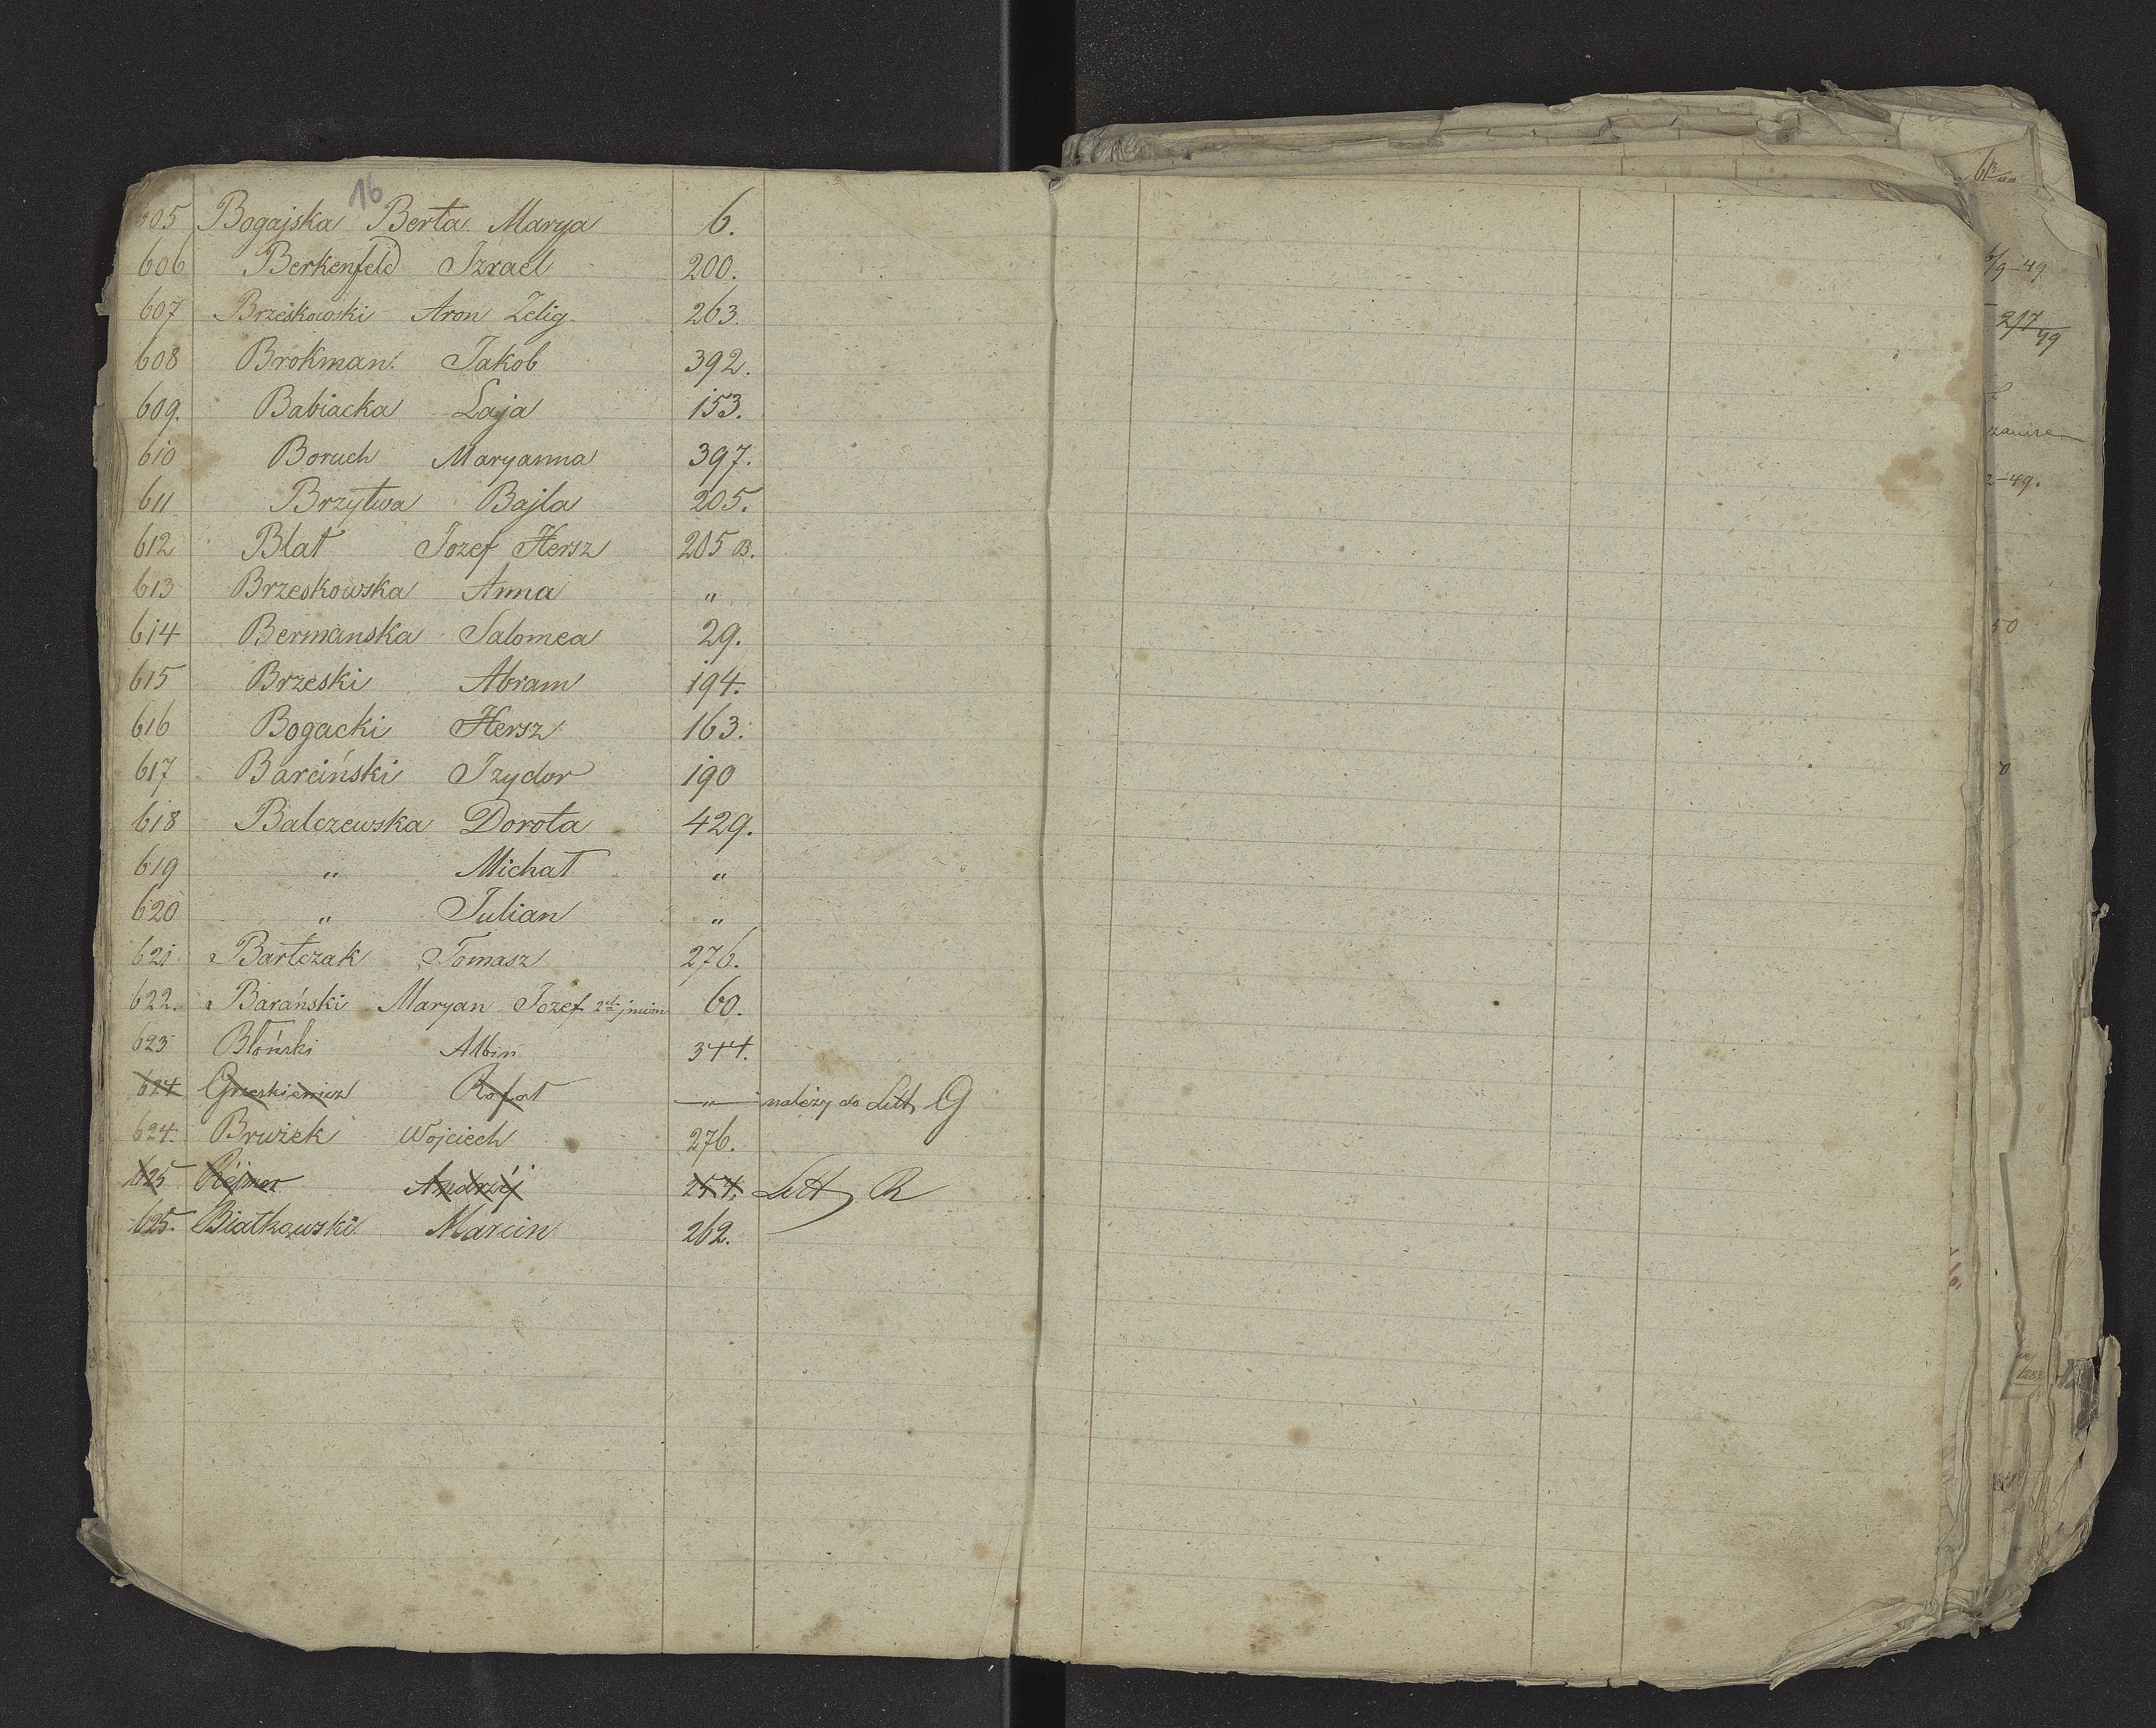 16
605 Bogajska Berta Marya 6.
606 Berkenfeld Izrael 200.
607 Brzeskowski Aron Zelig 263.
608 Brokman Jakob 392.
609. Babiacka Laja 153.
610 Boruch Maryanna 397.
611 Brzytwa Bajla 205.
612 Blat Jozef Hersz 205 B.
613 Brzeskowska Anna "
614 Bermanska Salomea 29.
615 Brzeski Abram 194.
616 Bogacki Hersz 163.
617 Barciński Izydor 190
618 Balczewska Dorota 429.
619 " Michał "
620 " Julian "
621 Bartczak Tomasz 276.
622. Barański Maryan Jozef 60.
623 Błoński Albin 344.
624 Grzeskiewicz Rafał " należy do Litt. G
624. Brużek Wojciech 276.
625 Rejmer Andrzéj 254. Litt. R
625. Białkowski Marcin 262.
6/9-49
217/49
2-49.
50